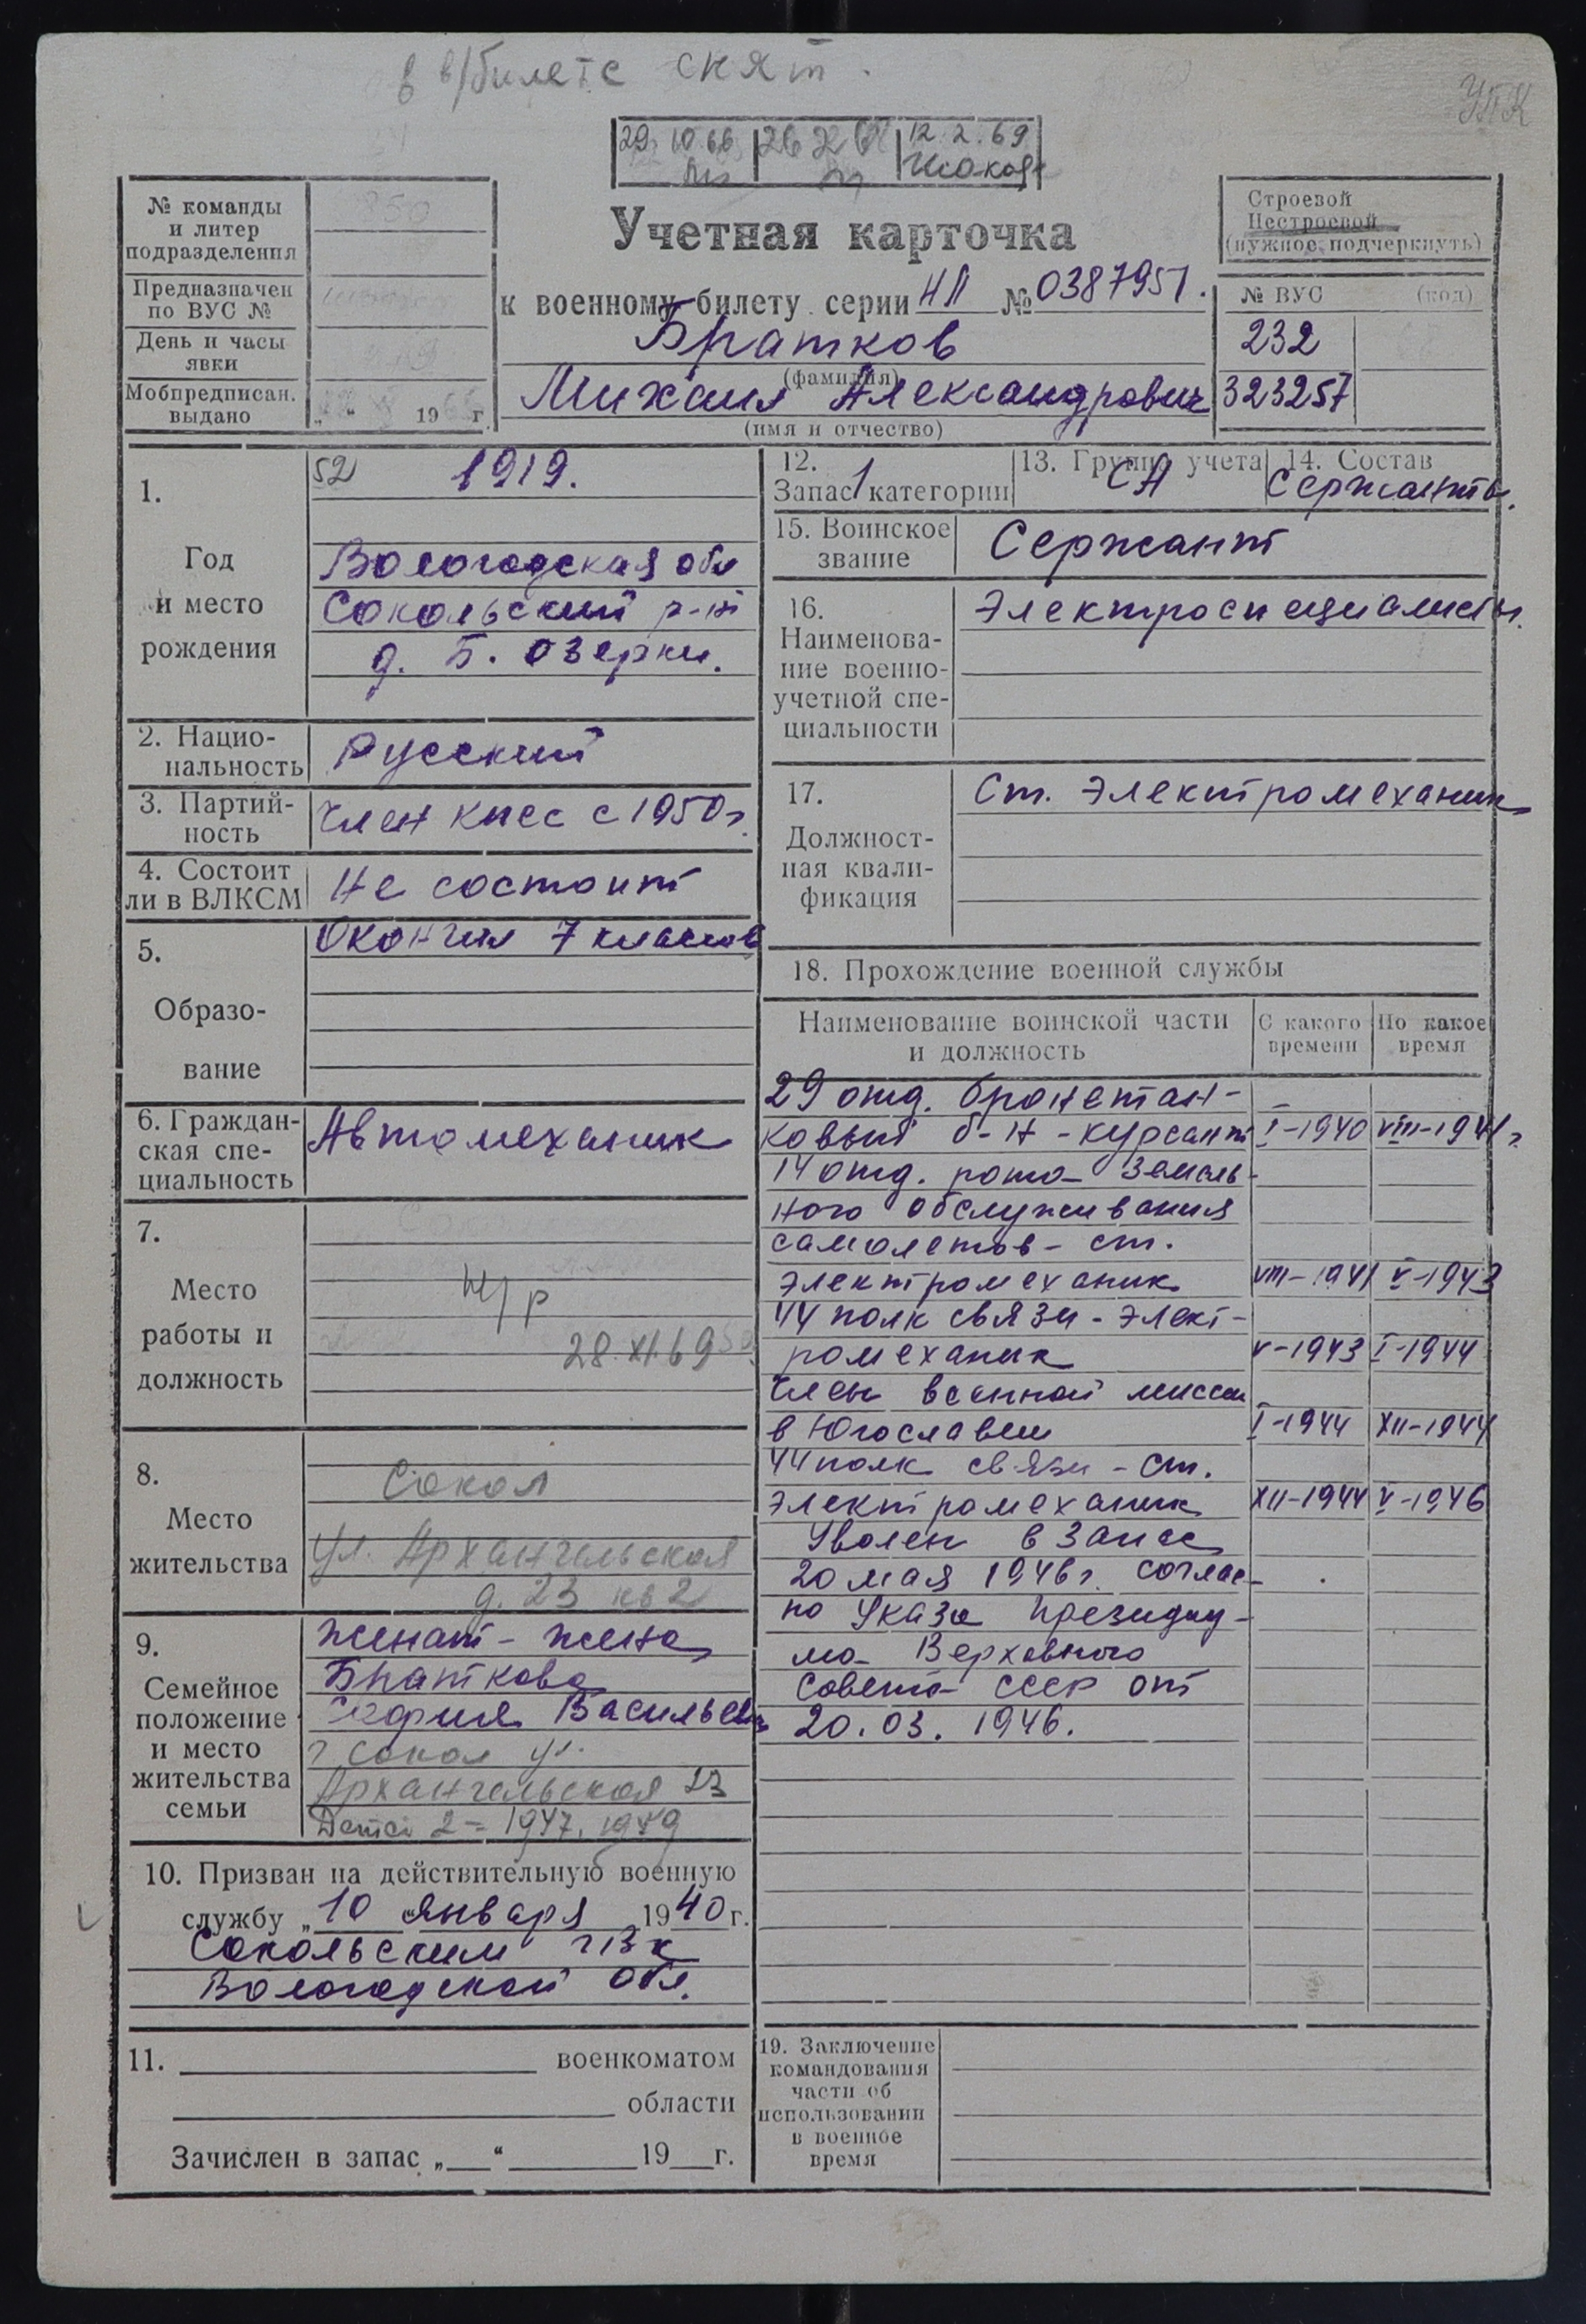 в в/билете снят.
УПК
29.10.66
12.2.69
№ команды
и литер
подразделения
Предназначен
по ВУС №
День и часы
явки
Мобпредписан.
выдано
„ “ 19 г.
Учетная карточка
к военному билету серии НЛ № 0387951.
Братков
(фамилия)
Михаил Александрович
(имя и отчество)
Строевой
Нестроевой
(нужное подчеркнуть)
№ ВУС (код)
232
323257
1.
Год
и место
рождения
52 1919.
Вологодская обл
Сокольский р-н
д. Б. Озерки.
2. Нацио-
нальность
Русский
3. Партий-
ность
Член КПСС с 1950 г.
4. Состоит
ли в ВЛКСМ
Не состоит
5.
Образо-
вание
Окончил 7 классов
6. Граждан-
ская спе-
циальность
Автомеханик
7.
Место
работы и
должность
н/р
28.XI.69
8.
Место
жительства
Сокол
ул. Архангельская
д. 23 кв 2
9.
Семейное
положение
и место
жительства
семьи
Женат - жена
Браткова
София Васильевна
г Сокол ул.
Архангельская 23
Детей 2 = 1947, 1949
10. Призван на действительную военную
службу „10 “ января 1940 г.
Сокольским ГВК
Вологодской обл.
11. военкоматом
области
Зачислен в запас „ “ 19 г.
12.
Запас 1 категории
13. Группа учета
СА
14. Состав
Сержанты.
15. Воинское
звание
Сержант
16.
Наименова-
ние военно-
учетной спе-
циальности
Электроспециалисты.
17.
Должност-
ная квали-
фикация
Ст. электромеханик
18. Прохождение военной службы
Наименование воинской части
и должность
С какого
времени
По какое
время
29 отд. бронетан-
ковый б-н - курсант I-1940 VIII-1941 г.
14 отд. рота земель-
ного обслуживания
самолетов - ст.
электромеханик VIII-1941 V-1943
44 полк связи - элект-
ромеханик V-1943 I-1944
Член военной миссии
в Югославии I-1944 XII-1944
44 полк связи - ст.
электромеханик XII-1944 V-1946
Уволен в запас
20 мая 1946 г. соглас-
но Указа Президиу-
ма Верховного
Совета СССР от
20.03.1946.
19. Заключение
командования
части об
использовании
в военное
время